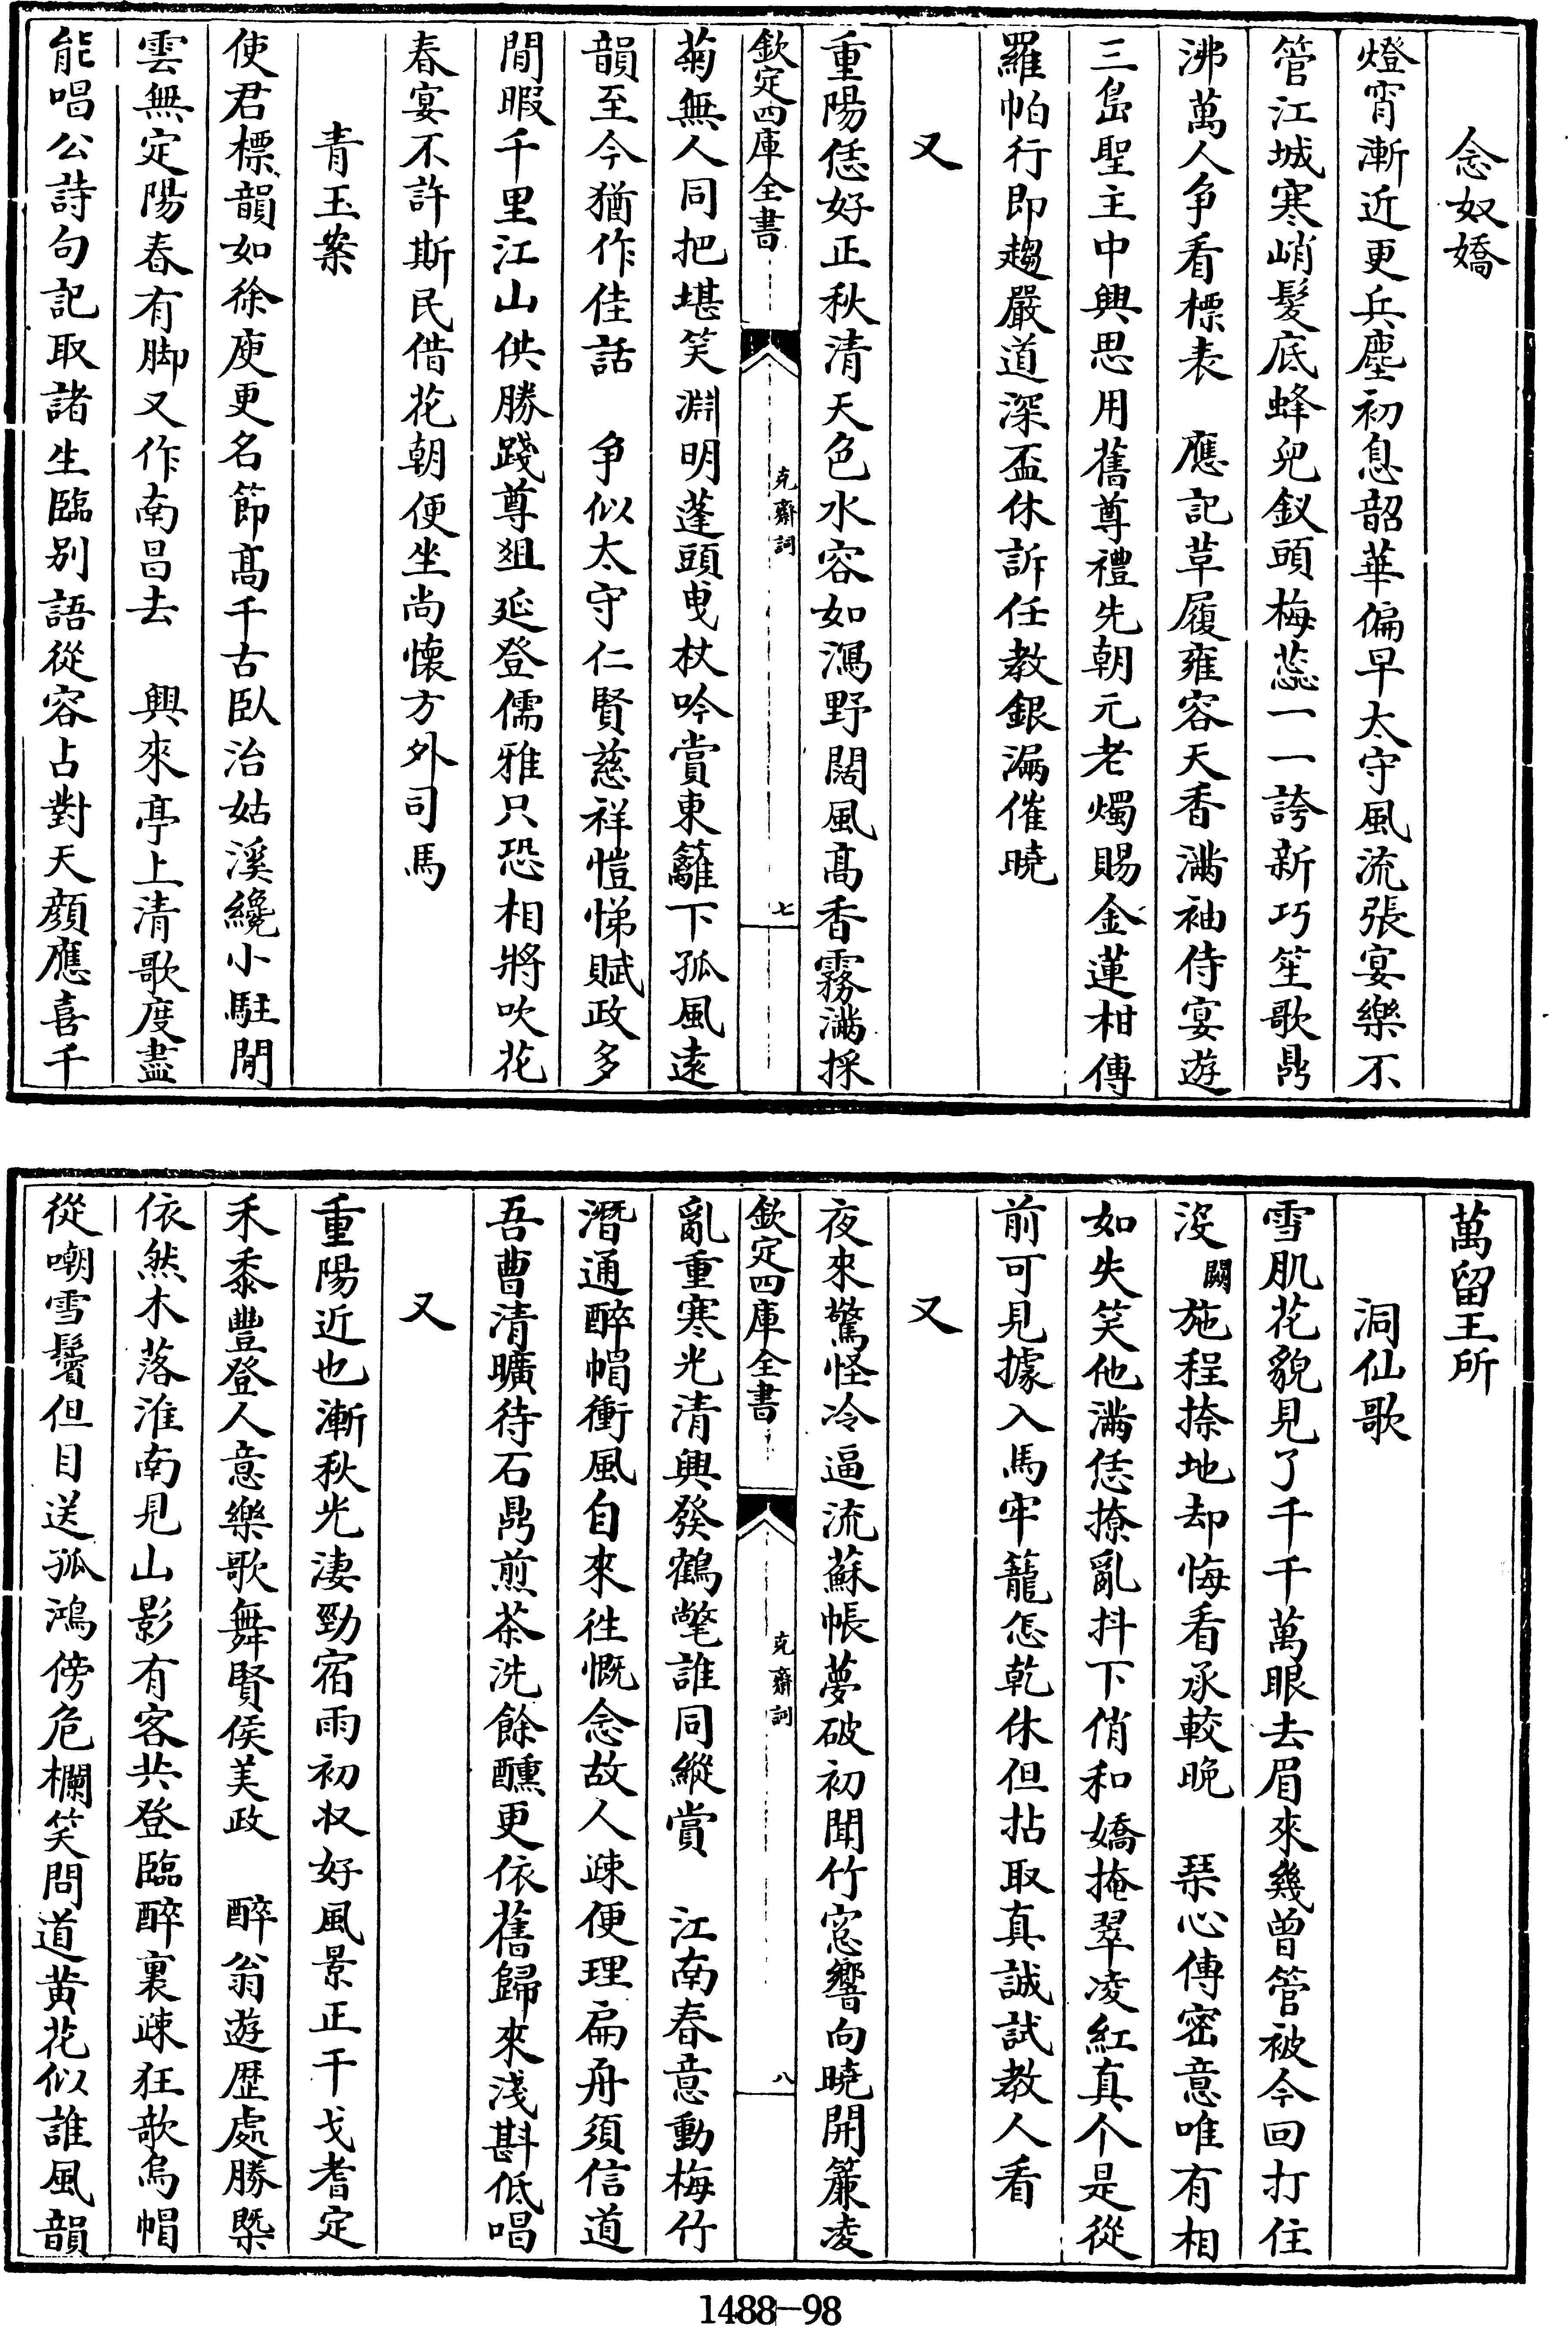 念奴嬌
燈宵漸近更兵塵初息韶華偏早太守風流張宴樂不
管江城寒峭髮底蜂兒釵頭梅蕊一一誇新巧笙歌鼎
沸萬人争看標表　應記草履雍容天香滿袖侍宴遊
三島聖主中興思用舊尊禮先朝元老燭賜金蓮柑傳
羅帕行即趨嚴道深盃休訴任教銀漏催曉
又
重陽恁好正秋清天色水容如瀉野闊風髙香霧滿採
欽定四庫全書
克齋詞
七
菊無人同把堪笑淵明蓬頭曳杖吟賞東籬下孤風遠
韻至今猶作佳話　争似太守仁賢慈祥愷悌賦政多
閒暇千里江山供勝踐尊爼延登儒雅只恐相將吹花
春宴不許斯民借花朝便坐尚懐方外司馬
青玉案
使君標韻如徐庾更名節髙千古臥治姑溪纔小駐閒
雲無定陽春有脚又作南昌去　興來亭上清歌度盡
能唱公詩句記取諸生臨别語從容占對天顔應喜千
萬留王所
洞仙歌
雪肌花貌見了千千萬眼去眉來幾曾管被今回打住
沒闕施程捺地却悔看承較晚　琹心傳密意唯有相
如失笑他滿恁撩亂抖下俏和嬌掩翠凌紅真个是從
前可見據入馬牢籠怎乾休但拈取真誠試教人看
又
夜來驚怪冷逼流蘇帳夢破初聞竹窓響向曉開簾凌
欽定四庫全書
克齋詞
八
亂重寒光清興發鶴氅誰同縱賞　江南春意動梅竹
潛通醉帽衝風自來往慨念故人疎便理扁舟須信道
吾曹清曠待石鼎煎茶洗餘醺更依舊歸來淺斟低唱
又
重陽近也漸秋光淒勁宿雨初收好風景正干戈耆定
禾黍豐登人意樂歌舞賢侯美政　醉翁遊歴處勝槩
依然木落淮南見山影有客共登臨醉裏疎狂欹烏帽
從嘲雪鬢但目送孤鴻傍危欄笑問道黄花似誰風韻
1488-98